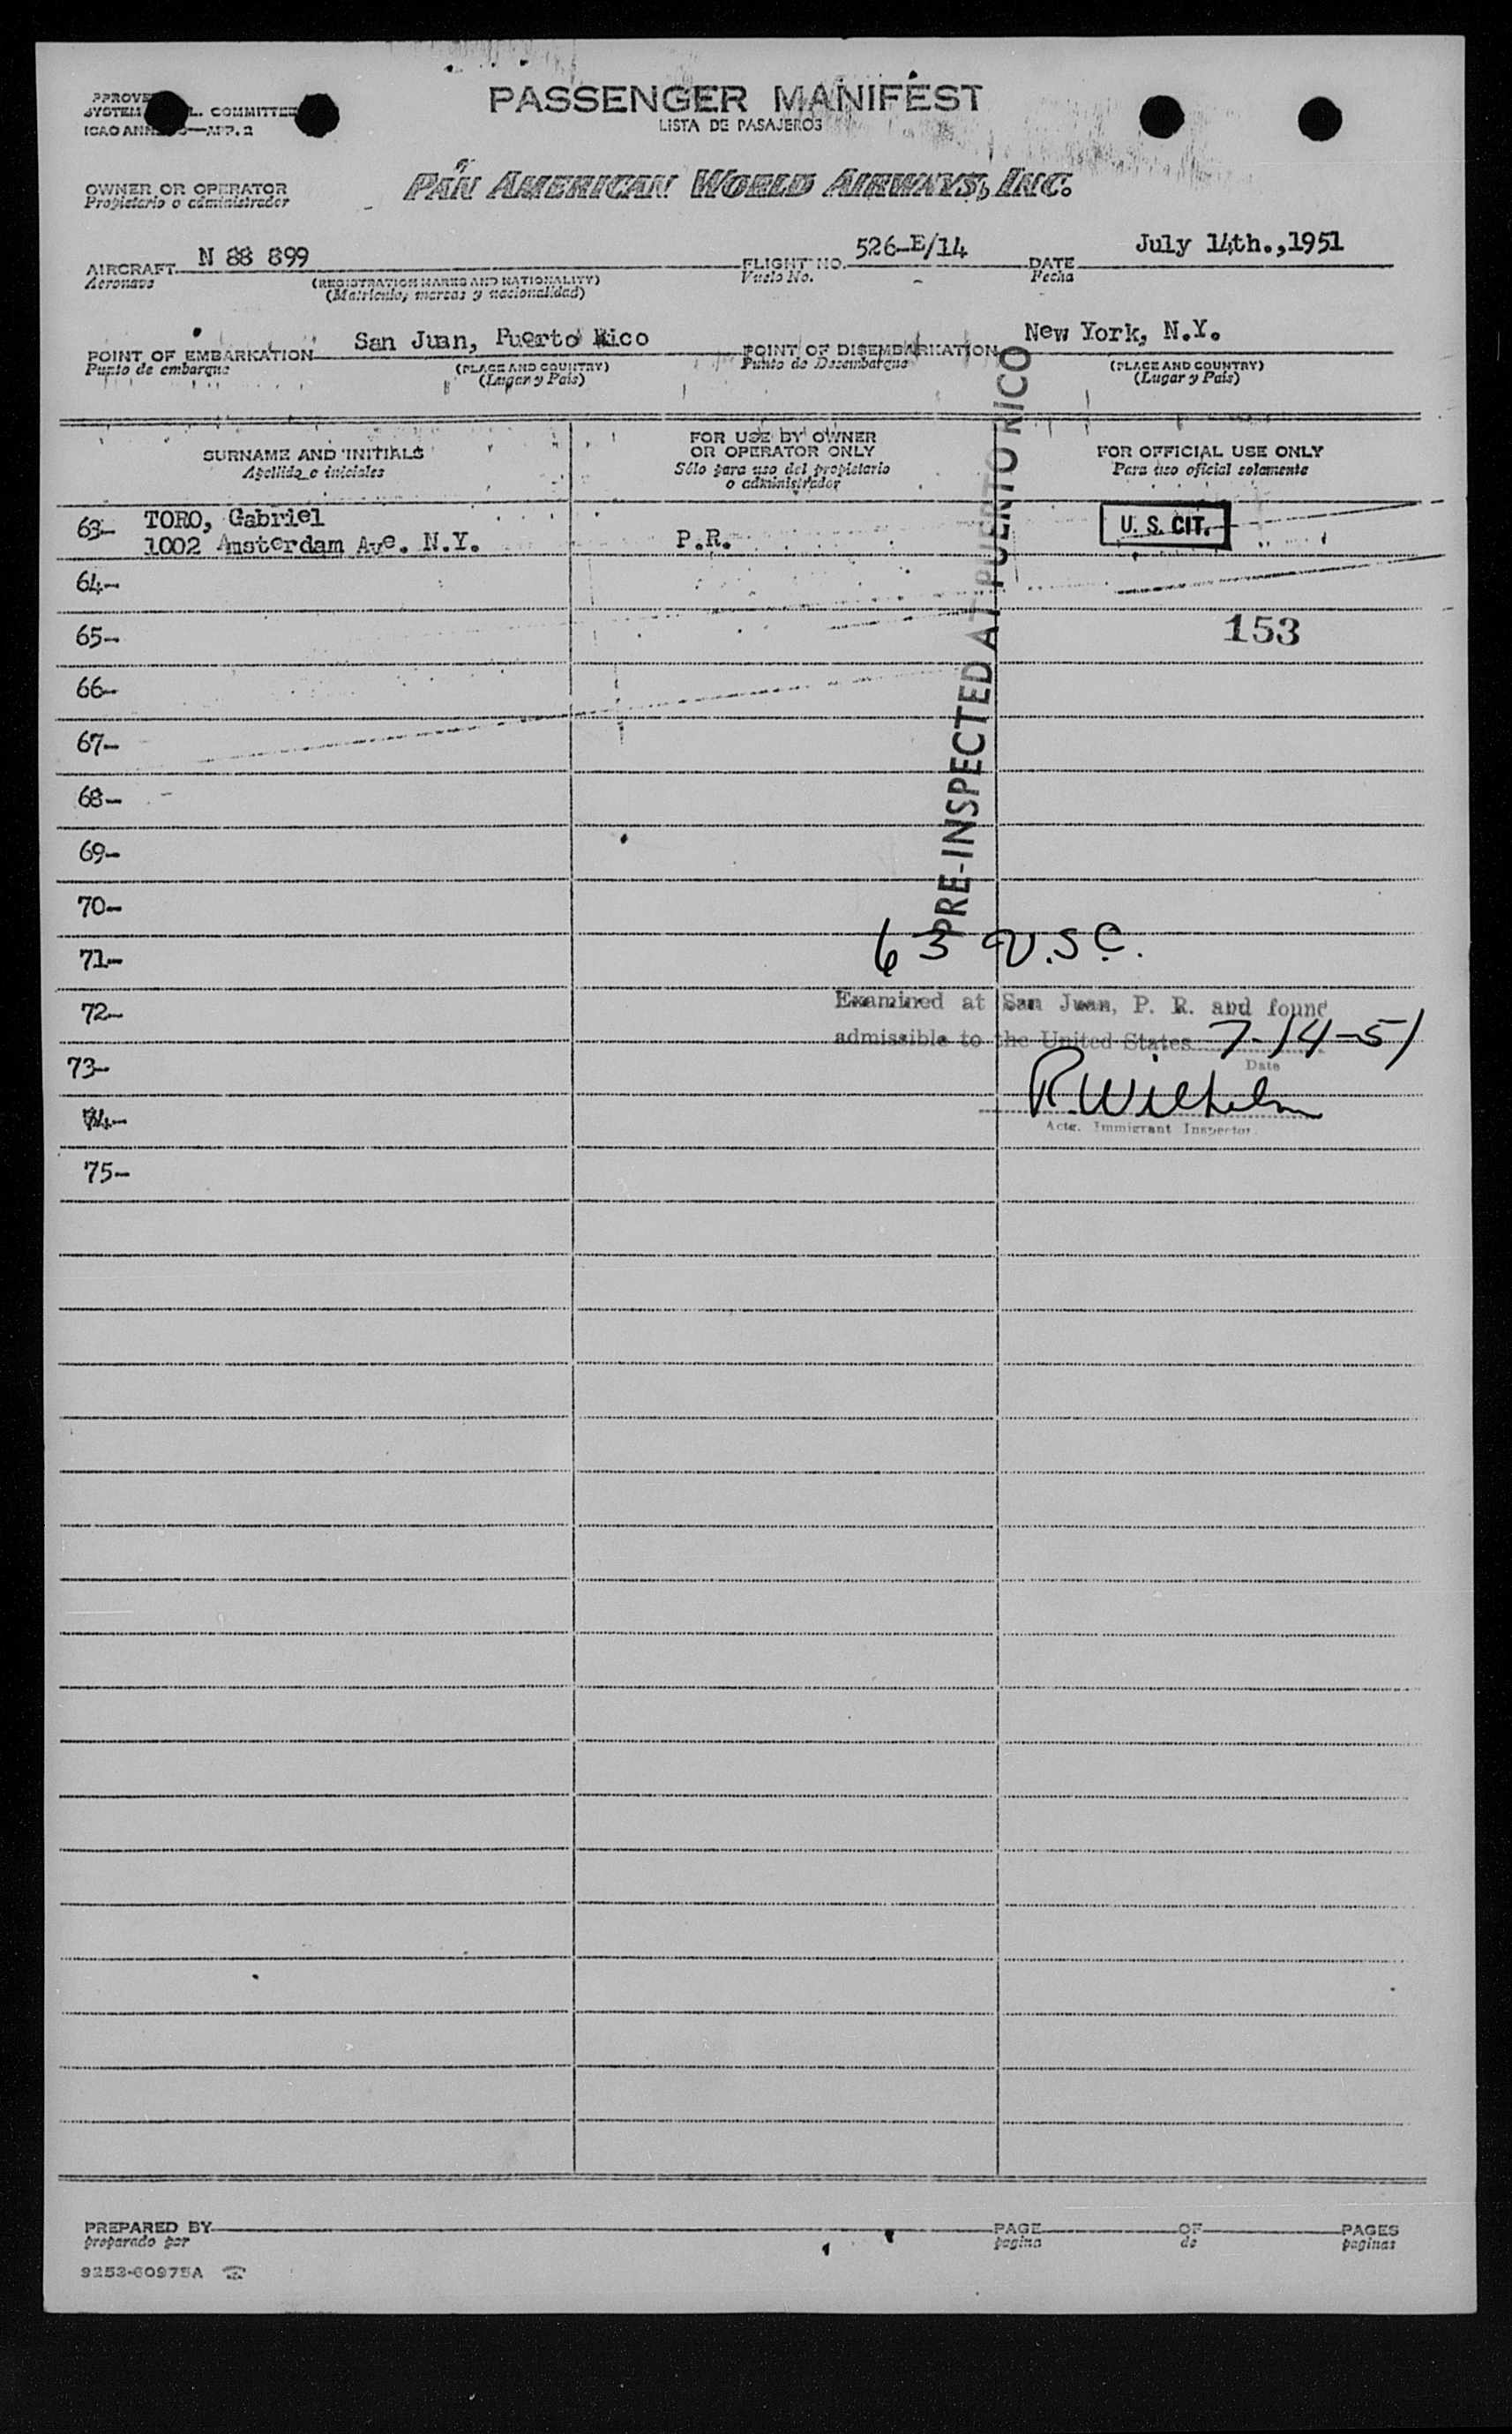 PASSENGER MANIFEST
LISTA DE PASAJEROS
COMMITTEE
OWNER OR OPERATOR
Propietario o administrador
PAN AMERICAN WORLD AIRWAYS, INC.
AIRCRAFT N 88 899 FLIGHT NO. 526-E/14 DATE July 14th.,1951
Aeronave (REGISTRATION MARKS AND NATIONALITY) Vuelo No. Fecha
(Matricula, marcas y nacionalidad)
POINT OF EMBARKATION San Juan, Puerto Rico POINT OF DISEMBARKATION New York, N.Y.
Punto de embarque (PLACE AND COUNTRY) Punto de Desembarque (PLACE AND COUNTRY)
(Lugar y Pais) (Lugar y Pais)
SURNAME AND INITIALS FOR USE BY OWNER OR OPERATOR ONLY FOR OFFICIAL USE ONLY
Apellido e iniciales Sólo para uso del propietario o administrador Para uso oficial solamente
63- TORO, Gabriel
1002 Amsterdam Ave. N.Y. P.R. U. S. CIT.
64-
65- 153
66-
67-
68-
69-
70-
PRE-INSPECTED AT PUERTO RICO
71- 63 U.S.C.
72- Examined at San Juan, P. R. and found
admissible to the United States 7-14-51
73- Date
74- R. Wilhelm
Actg. Immigrant Inspector.
75-
PREPARED BY PAGE OF PAGES
preparado por pagina de paginas
9253-60975A